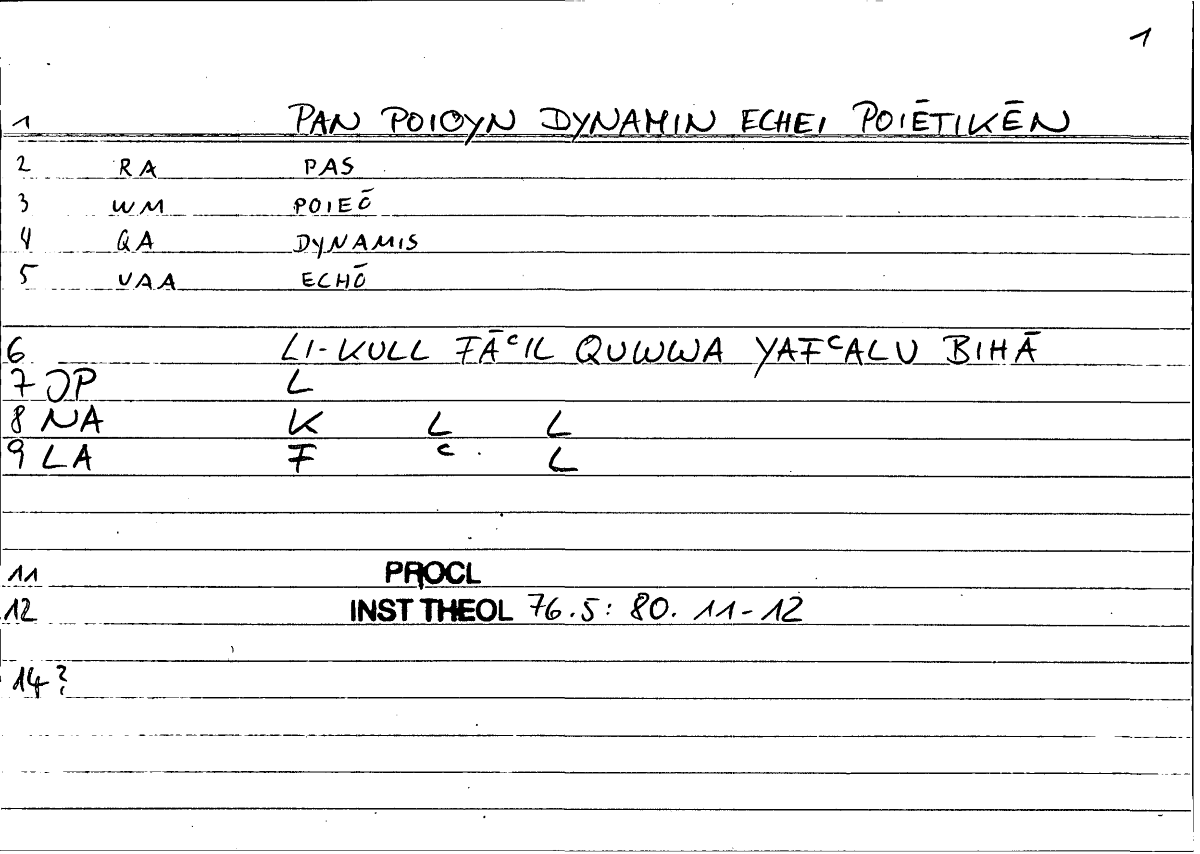 1
1 PAN POIOYN DYNAMIN ECHEI POIĒTIKĒN
2 RA PAS
3 WM POIEŌ
4 QA DYNAMIS
5 VAA ECHŌ
6 LI-KULL FĀᶜIL QUWWA YAFᶜALU BIHĀ
7 JP L
8 NA K L L
9 LA F ᶜ L
11 PROCL
12 INST THEOL 76.5: 80. 11-12
14?